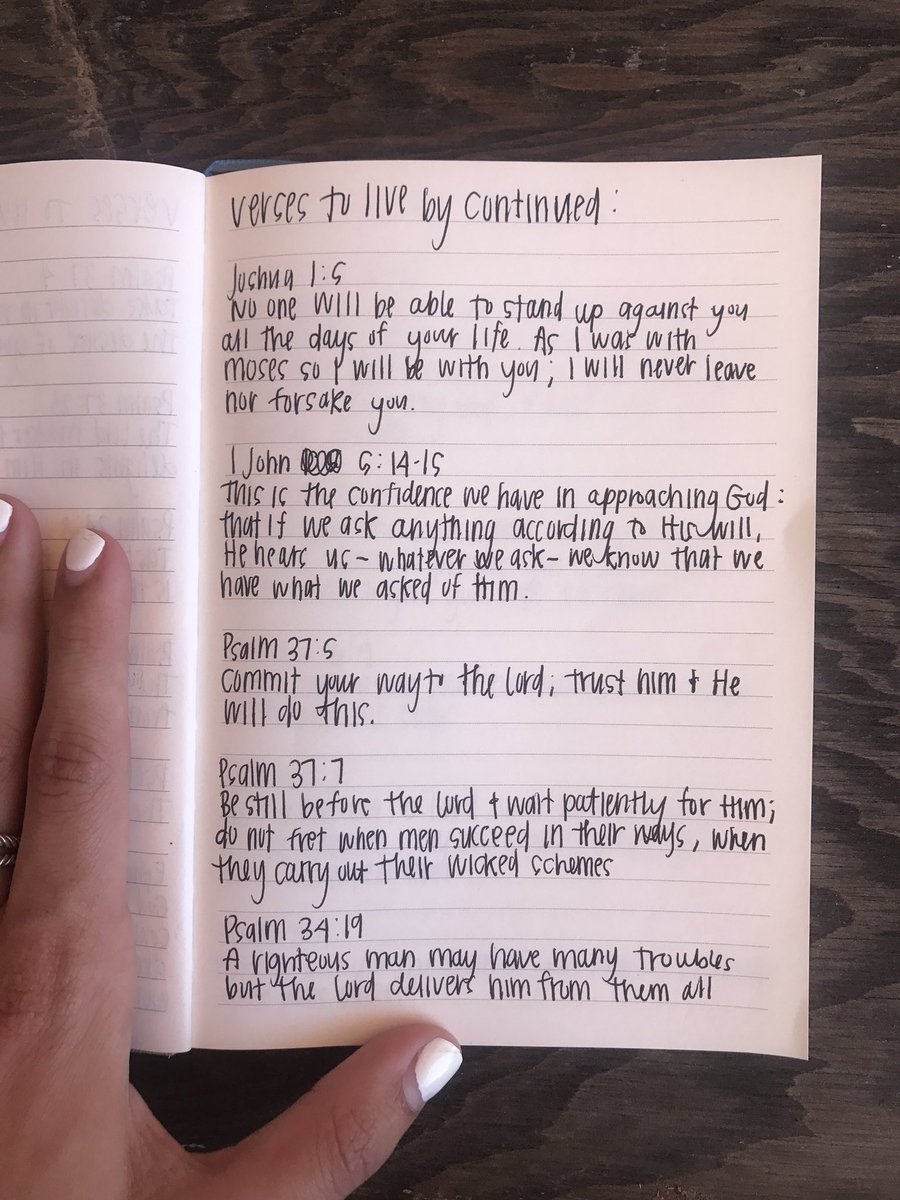 verses to live by continued:
Joshua 1:5
No one will be able to stand up against you
all the days of your life. As I was with
moses so I will be with you; I will never leave
nor forsake you.
1 John 5:14-15
This is the confidence we have in approaching God:
that if we ask anything according to His will,
He hears us - whatever we ask - we know that we
have what we asked of Him.
Psalm 37:5
Commit your way to the Lord; trust him & He
will do this.
Psalm 37:7
Be still before the Lord & wait patiently for Him;
do not fret when men succeed in their ways, when
they carry out their wicked schemes
Psalm 34:19
A righteous man may have many troubles
but the Lord delivers him from them all